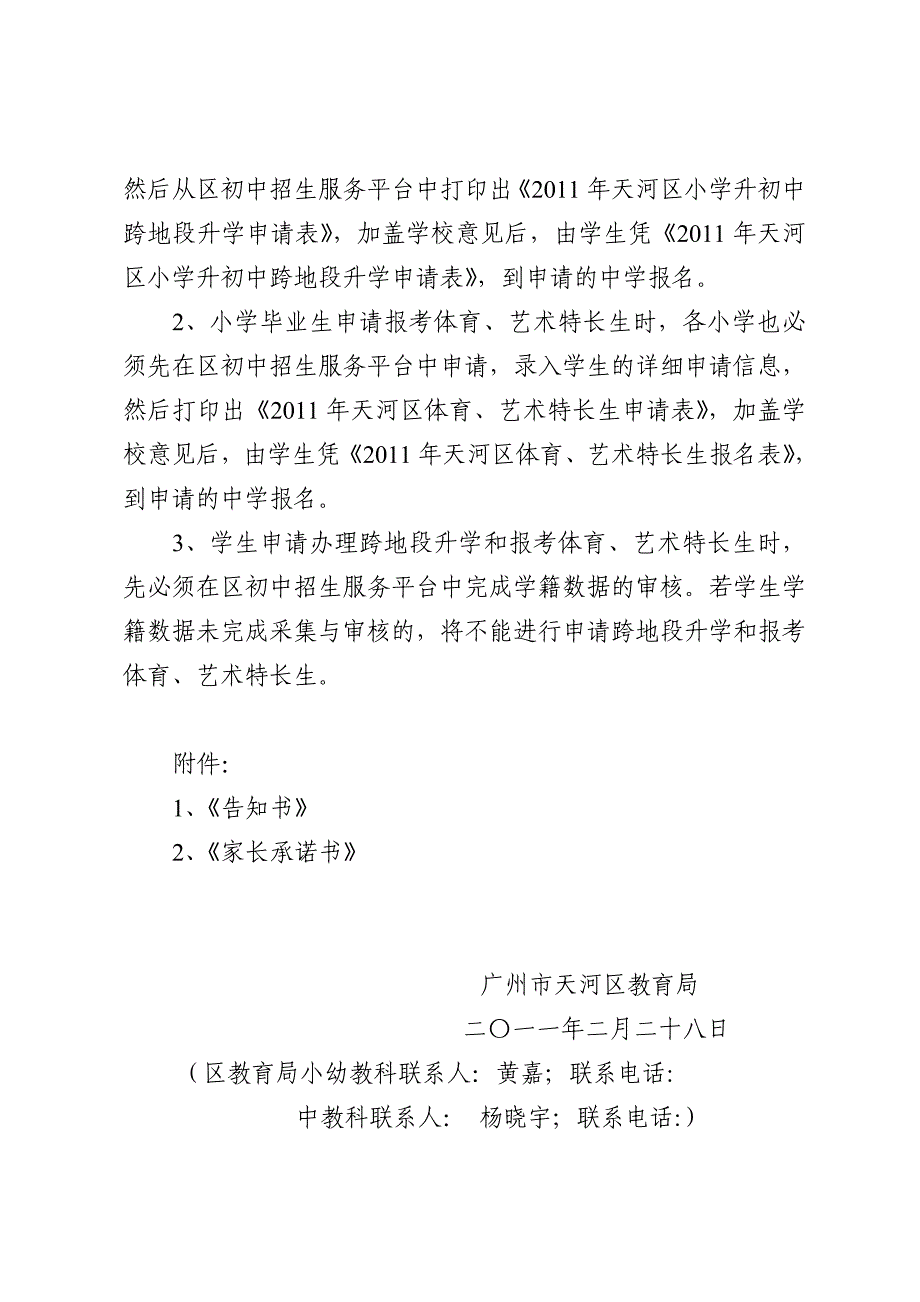 然后从区初中招生服务平台中打印出《2011年天河区小学升初中
跨地段升学申请表》，加盖学校意见后，由学生凭《2011年天河
区小学升初中跨地段升学申请表》，到申请的中学报名。
2、小学毕业生申请报考体育、艺术特长生时，各小学也必
须先在区初中招生服务平台中申请，录入学生的详细申请信息，
然后打印出《2011年天河区体育、艺术特长生申请表》，加盖学
校意见后，由学生凭《2011年天河区体育、艺术特长生报名表》，
到申请的中学报名。
3、学生申请办理跨地段升学和报考体育、艺术特长生时，
先必须在区初中招生服务平台中完成学籍数据的审核。若学生学
籍数据未完成采集与审核的，将不能进行申请跨地段升学和报考
体育、艺术特长生。
附件：
1、《告知书》
2、《家长承诺书》
广州市天河区教育局
二〇一一年二月二十八日
（区教育局小幼教科联系人：黄嘉；联系电话：
中教科联系人： 杨晓宇；联系电话:）